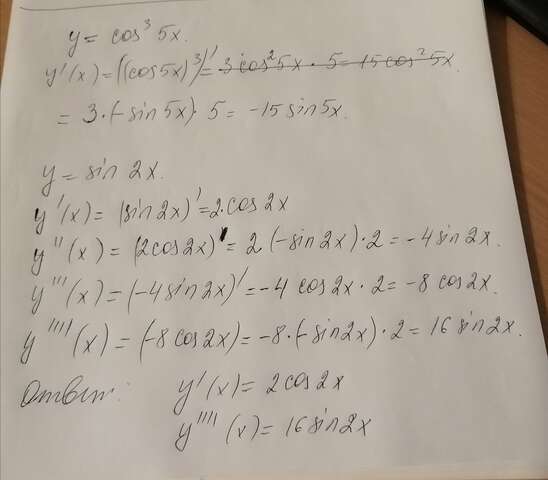 y = cos³ 5x.
y'(x) = ((cos5x)³)' = 3cos²5x · 5 = 15cos²5x.
= 3·(-sin5x)·5 = -15sin5x.
y = sin 2x.
y'(x) = (sin2x)' = 2·cos2x
y''(x) = (2cos2x)' = 2(-sin2x)·2 = -4sin2x.
y'''(x) = (-4sin2x)' = -4 cos2x·2 = -8cos2x.
y''''(x) = (-8cos2x) = -8·(-sin2x)·2 = 16sin2x.
Ответ: y'(x) = 2cos2x
y''''(x) = 16sin2x